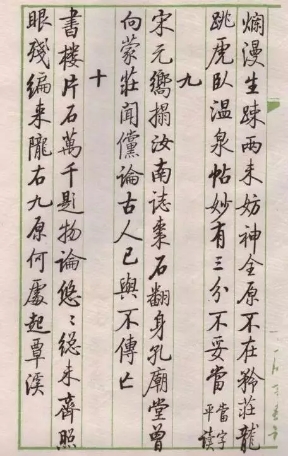 爛漫生疎兩未妨神全原不在矜莊龍
跳虎臥溫泉帖妙有三分不妥當當字平讀
九
宋元嚮搨汝南誌棗石翻身孔廟堂曾
向蒙莊聞讜論古人已與不傳亡
十
書楼片石萬千題物論悠〻總未齊照
眼殘編来隴右九原何處起覃溪